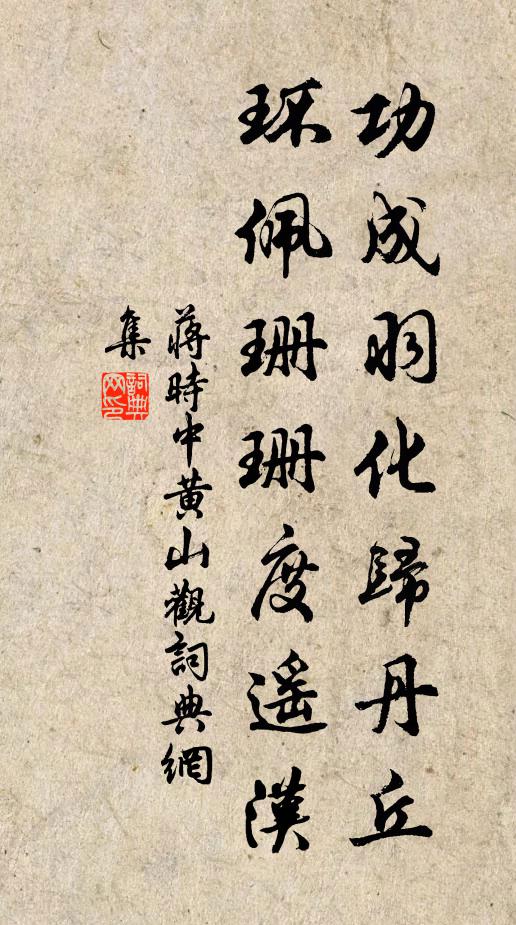 功成羽化歸丹丘
环佩珊珊度遥漢
蔣時中黄山觀詞典網
集
詞典
网印